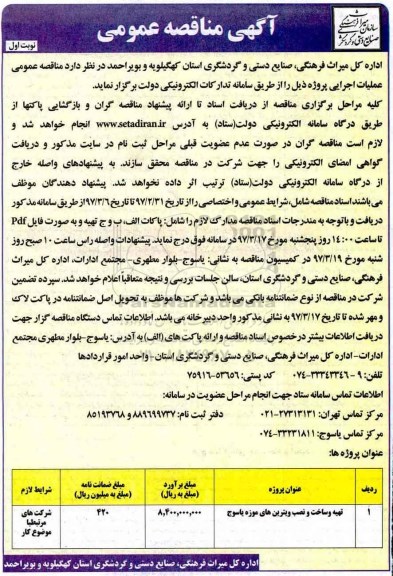 آگهی مناقصه عمومی
نوبت اول
اداره کل میراث فرهنگی، صنایع دستی و گردشگری استان کهگیلویه و بویراحمد در نظر دارد مناقصه عمومی
عملیات اجرایی پروژه ذیل را از طریق سامانه تدارکات الکترونیکی دولت برگزار نماید.
کلیه مراحل برگزاری مناقصه از دریافت اسناد تا ارائه پیشنهاد مناقصه گران و بازگشایی پاکتها از
طریق درگاه سامانه الکترونیکی دولت(ستاد) به آدرس www.setadiran.ir انجام خواهد شد و
لازم است مناقصه گران در صورت عدم عضویت قبلی مراحل ثبت نام در سایت مذکور و دریافت
گواهی امضای الکترونیکی را جهت شرکت در مناقصه محقق سازند. به پیشنهادهای واصله خارج
از درگاه سامانه الکترونیکی دولت(ستاد) ترتیب اثر داده نخواهد شد. پیشنهاد دهندگان موظف
می باشند اسناد مناقصه شامل، شرایط عمومی و اختصاصی را از تاریخ ۹۷/۲/۳۱ تا تاریخ ۹۷/۳/۶ از طریق سامانه مذکور
دریافت و باتوجه به مندرجات اسناد مناقصه مدارک لازم را شامل: پاکات الف، ب و ج تهیه و به صورت فایل Pdf
تا ساعت ۱۴:۰۰ روز پنجشنبه مورخ ۹۷/۳/۱۷ در سامانه فوق درج نماید. پیشنهادات واصله راس ساعت ۱۰ صبح روز
شنبه مورخ ۹۷/۳/۱۹ در کمیسیون مناقصه به نشانی: یاسوج-بلوار مطهری- مجتمع ادارات، اداره کل میراث
فرهنگی، صنایع دستی و گردشگری استان، سالن جلسات بررسی و نتیجه متعاقبا اعلام خواهد شد. سپرده تضمین
شرکت در مناقصه از نوع ضمانتنامه بانکی می باشد و شرکت ها موظف به تحویل اصل ضمانتنامه در پاکت لاک
و مهر شده تا تاریخ ۹۷/۳/۱۷ به نشانی مذکور واحد دبیرخانه می باشد. اطلاعات تماس دستگاه مناقصه گزار جهت
دریافت اطلاعات بیشتر در خصوص اسناد مناقصه و ارائه پاکت های (الف) به آدرس: یاسوج-بلوار مطهری مجتمع
ادارات- اداره کل میراث فرهنگی، صنایع دستی و گردشگری استان - واحد امور قراردادها
تلفن: ۹ - ۳۳۳۴۳۳۴۶-۰۷۴ کد پستی: ۵۳۶۵۶-۷۵۹۱۶
اطلاعات تماس سامانه ستاد جهت انجام مراحل عضویت در سامانه:
مرکز تماس تهران: ۲۷۳۱۳۱۳۱-۰۲۱ دفتر ثبت نام: ۸۸۹۶۹۷۳۷ و ۸۵۱۹۳۷۶۸
مرکز تماس یاسوج: ۳۳۲۳۱۸۱۱-۰۷۴
عنوان پروژه ها:
ردیف عنوان پروژه مبلغ برآورد (مبلغ به ریال) مبلغ ضمانت نامه (مبلغ به میلیون ریال) شرایط لازم
۱ تهیه وساخت و نصب ویترین های موزه یاسوج ۸,۴۰۰,۰۰۰,۰۰۰ ۴۲۰ شرکت های مرتبط با موضوع کار
اداره کل میراث فرهنگی، صنایع دستی و گردشگری استان کهگیلویه و بویراحمد